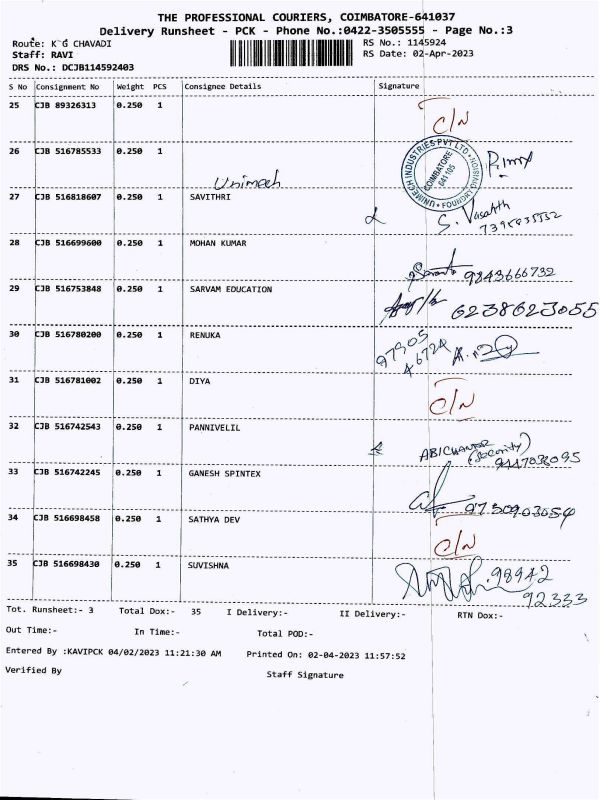 THE PROFESSIONAL COURIERS, COIMBATORE-641037
Delivery Runsheet - PCK - Phone No.:0422-3505555 - Page No.:3
Route: K G CHAVADI RS No.: 1145924
Staff: RAVI RS Date: 02-Apr-2023
DRS No.: DCJB114592403
S No Consignment No Weight PCS Consignee Details Signature
25 CJB 89326313 0.250 1 C/N
26 CJB 516785533 0.250 1 Unimech
UNIMECH INDUSTRIES PVT LTD. FOUNDRY DIVISION COIMBATORE 641105
27 CJB 516818607 0.250 1 SAVITHRI
28 CJB 516699600 0.250 1 MOHAN KUMAR 9843666732
29 CJB 516753848 0.250 1 SARVAM EDUCATION 6238623055
30 CJB 516780200 0.250 1 RENUKA 97905 46724
31 CJB 516781002 0.250 1 DIYA C/N
32 CJB 516742543 0.250 1 PANNIVELIL (Security)
33 CJB 516742245 0.250 1 GANESH SPINTEX
34 CJB 516698458 0.250 1 SATHYA DEV C/N
35 CJB 516698430 0.250 1 SUVISHNA 98942 92333
Tot. Runsheet:- 3 Total Dox:- 35 I Delivery:- II Delivery:- RTN Dox:-
Out Time:- In Time:- Total POD:-
Entered By :KAVIPCK 04/02/2023 11:21:30 AM Printed On: 02-04-2023 11:57:52
Verified By Staff Signature